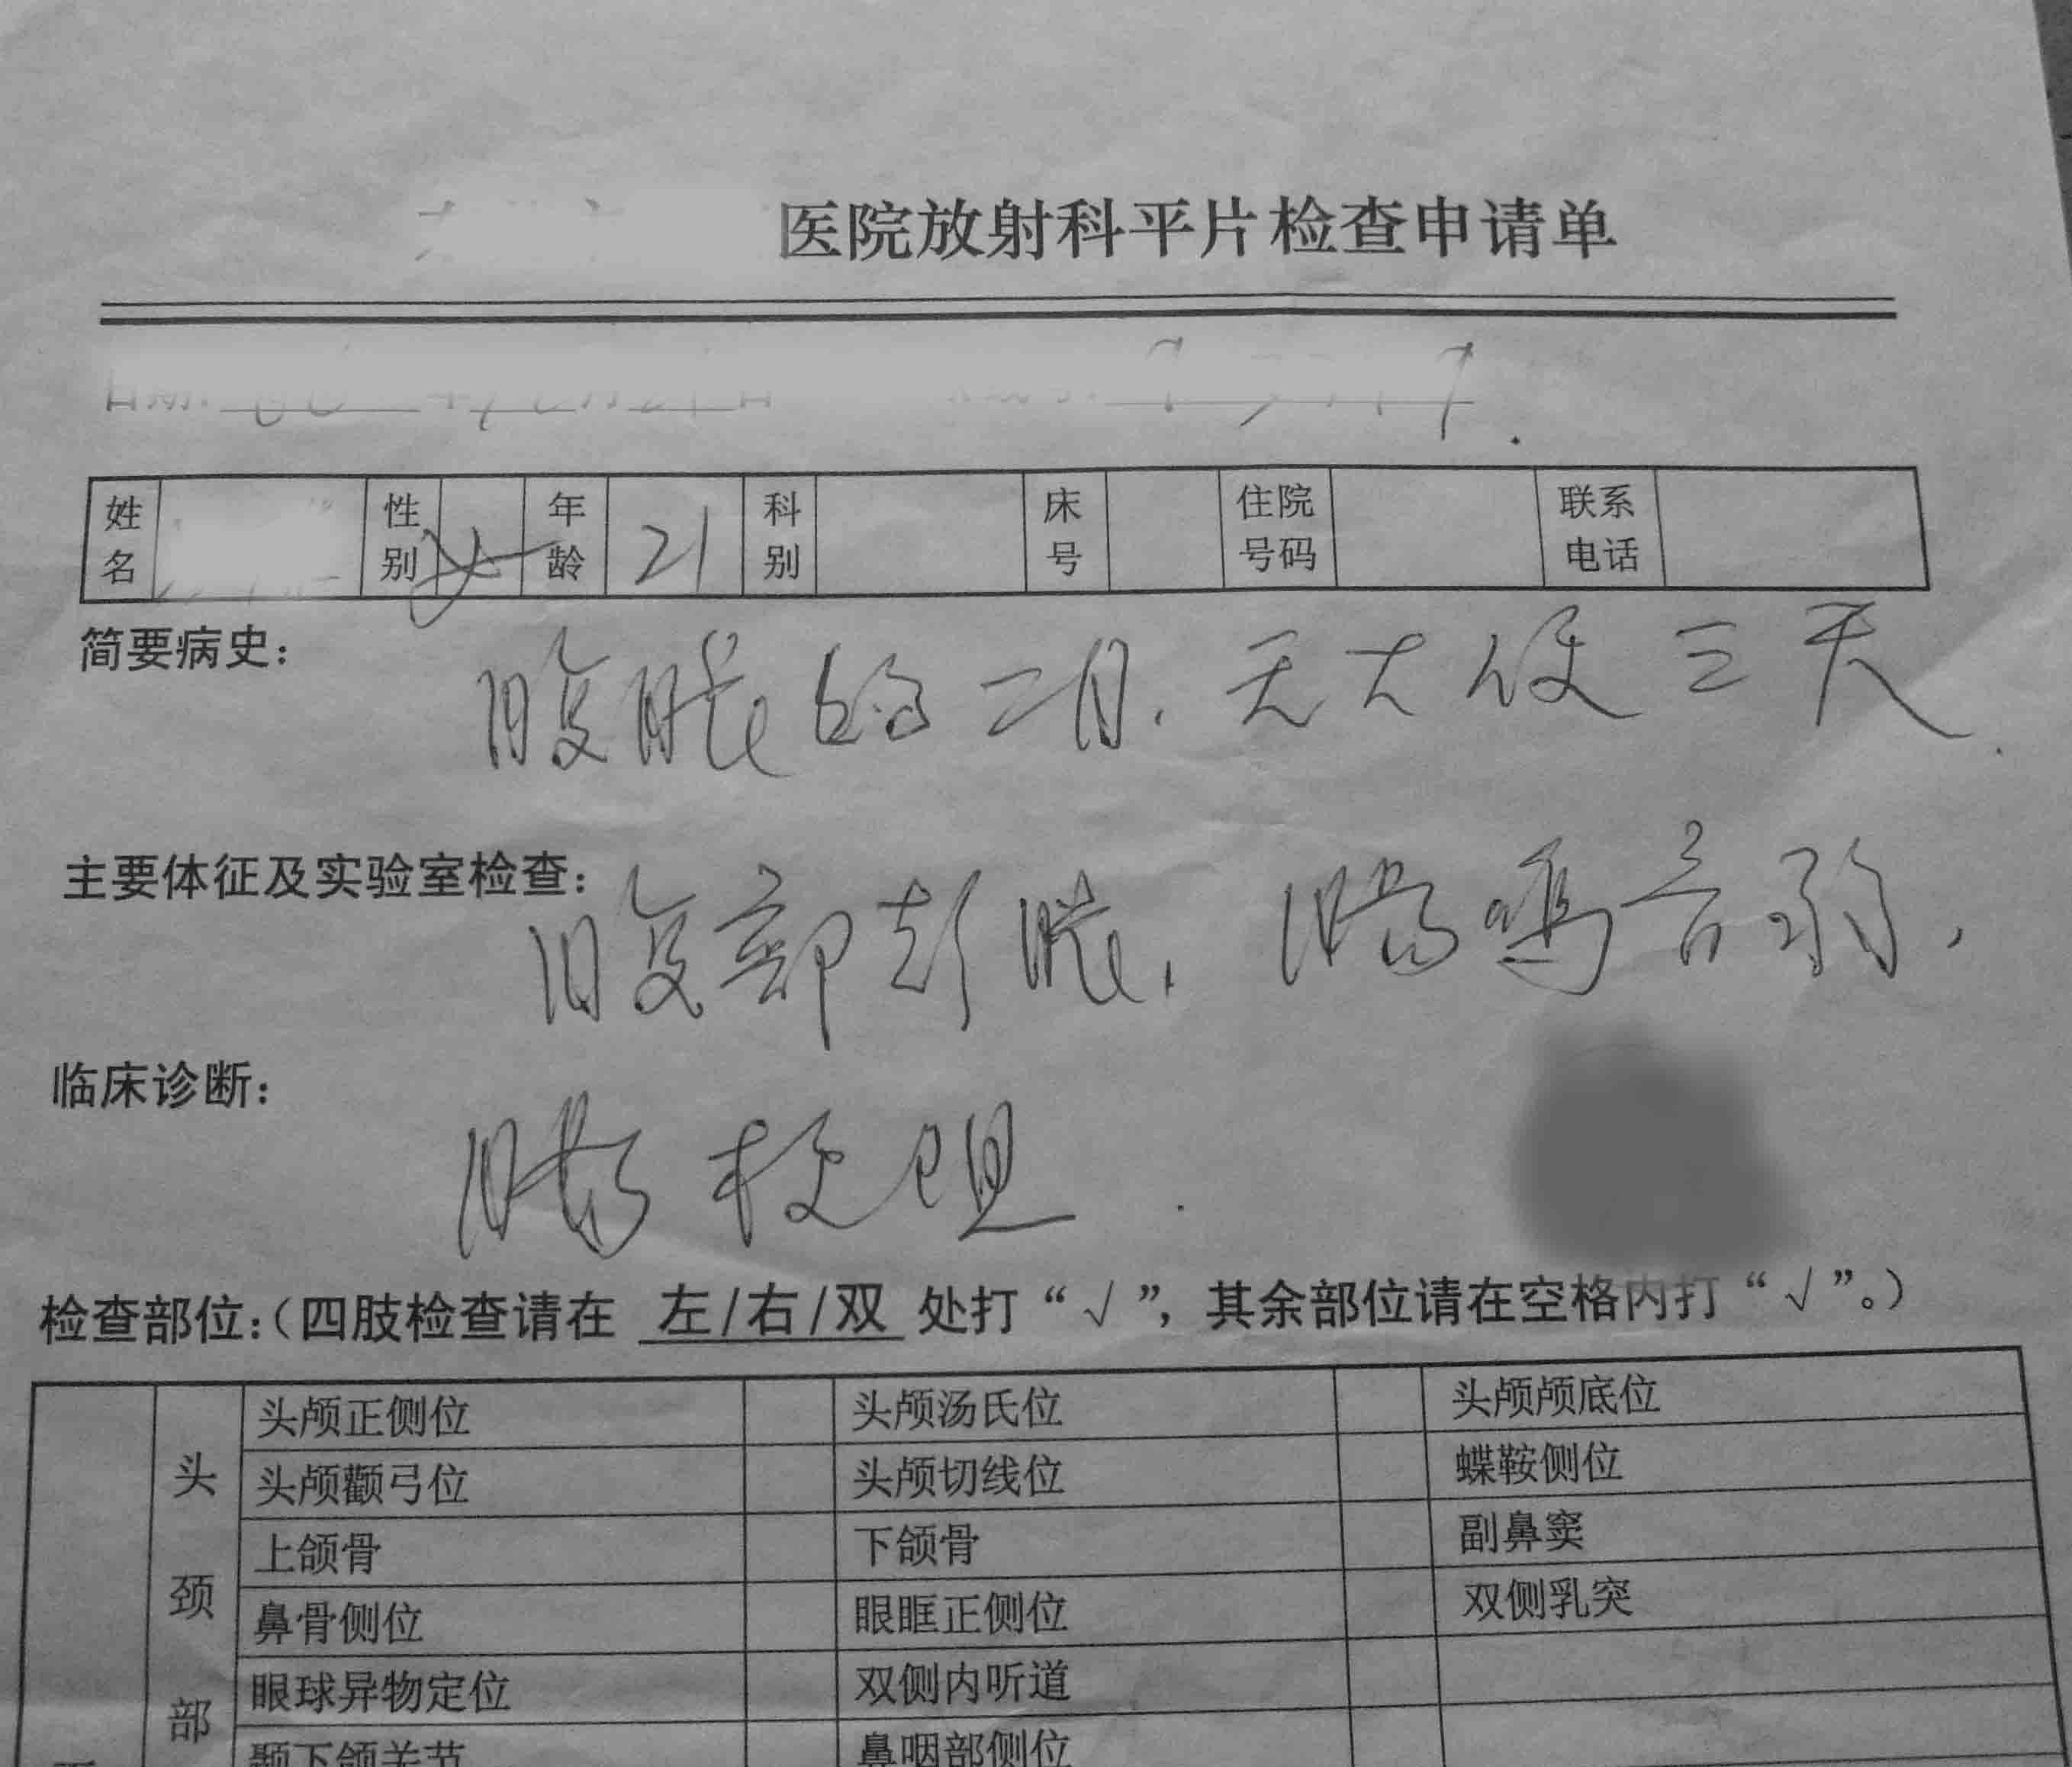 医院放射科平片检查申请单
姓名 性别 女 年龄 21 科别 床号 住院号码 联系电话
简要病史: 腹胀约二月.无大便三天.
主要体征及实验室检查: 腹部彭胀,肠鸣音弱,
临床诊断: 肠梗阻.
检查部位:(四肢检查请在 左/右/双 处打“√”,其余部位请在空格内打“√”。)
头颅正侧位 头颅汤氏位 头颅颅底位
头颅颧弓位 头颅切线位 蝶鞍侧位
上颌骨 下颌骨 副鼻窦
鼻骨侧位 眼眶正侧位 双侧乳突
眼球异物定位 双侧内听道
颞下颌关节 鼻咽部侧位
头颈部